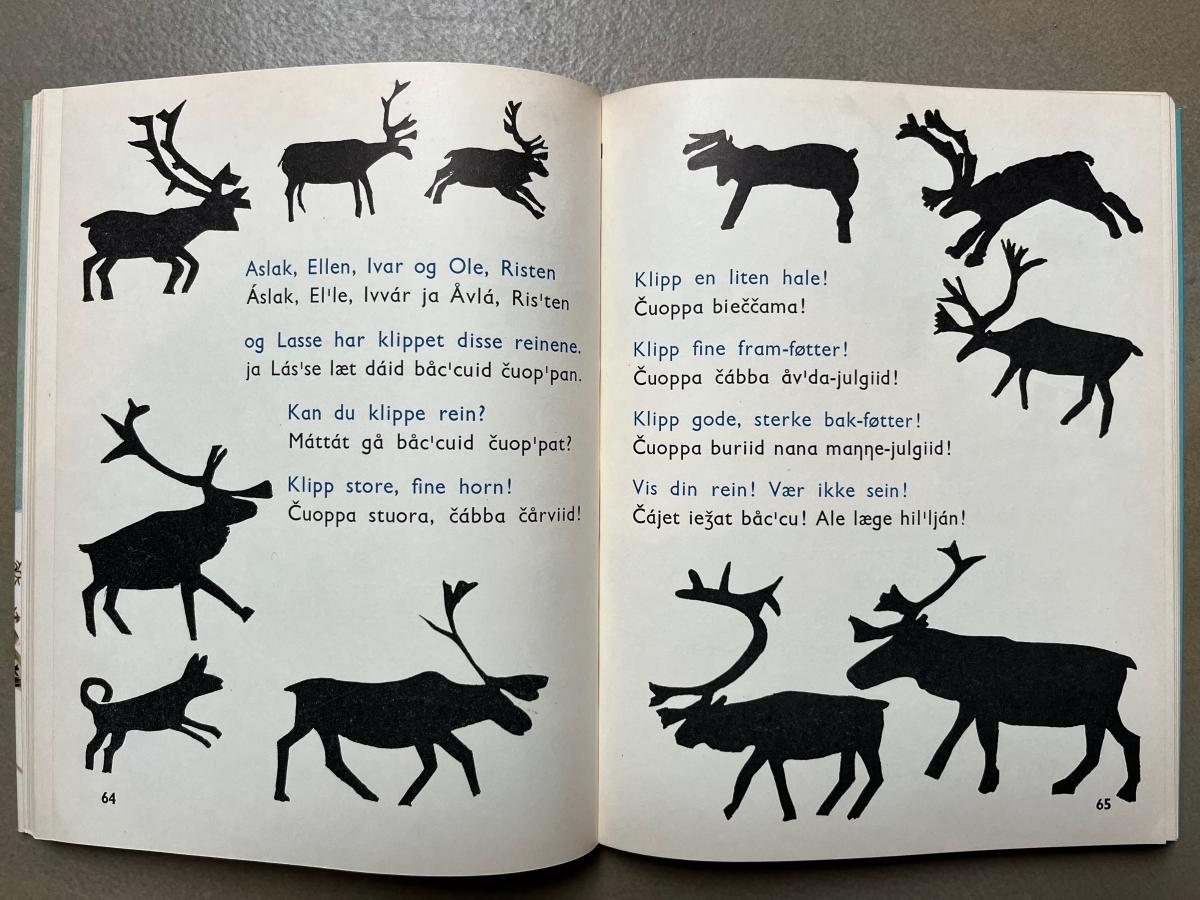 Aslak, Ellen, Ivar og Ole, Risten
Áslak, Elˈle, Ivvár ja Åvlá, Risˈten
og Lasse har klippet disse reinene.
ja Lásˈse læt dáid båcˈcuid čuopˈpan.
Kan du klippe rein?
Máttát gå båcˈcuid čuopˈpat?
Klipp store, fine horn!
Čuoppa stuora, čábba čårviid!
64
Klipp en liten hale!
Čuoppa bieččama!
Klipp fine fram-føtter!
Čuoppa čábba åvˈda-julgiid!
Klipp gode, sterke bak-føtter!
Čuoppa buriid nana maŋŋe-julgiid!
Vis din rein! Vær ikke sein!
Čájet ieǯat båcˈcu! Ale læge hilˈlján!
65